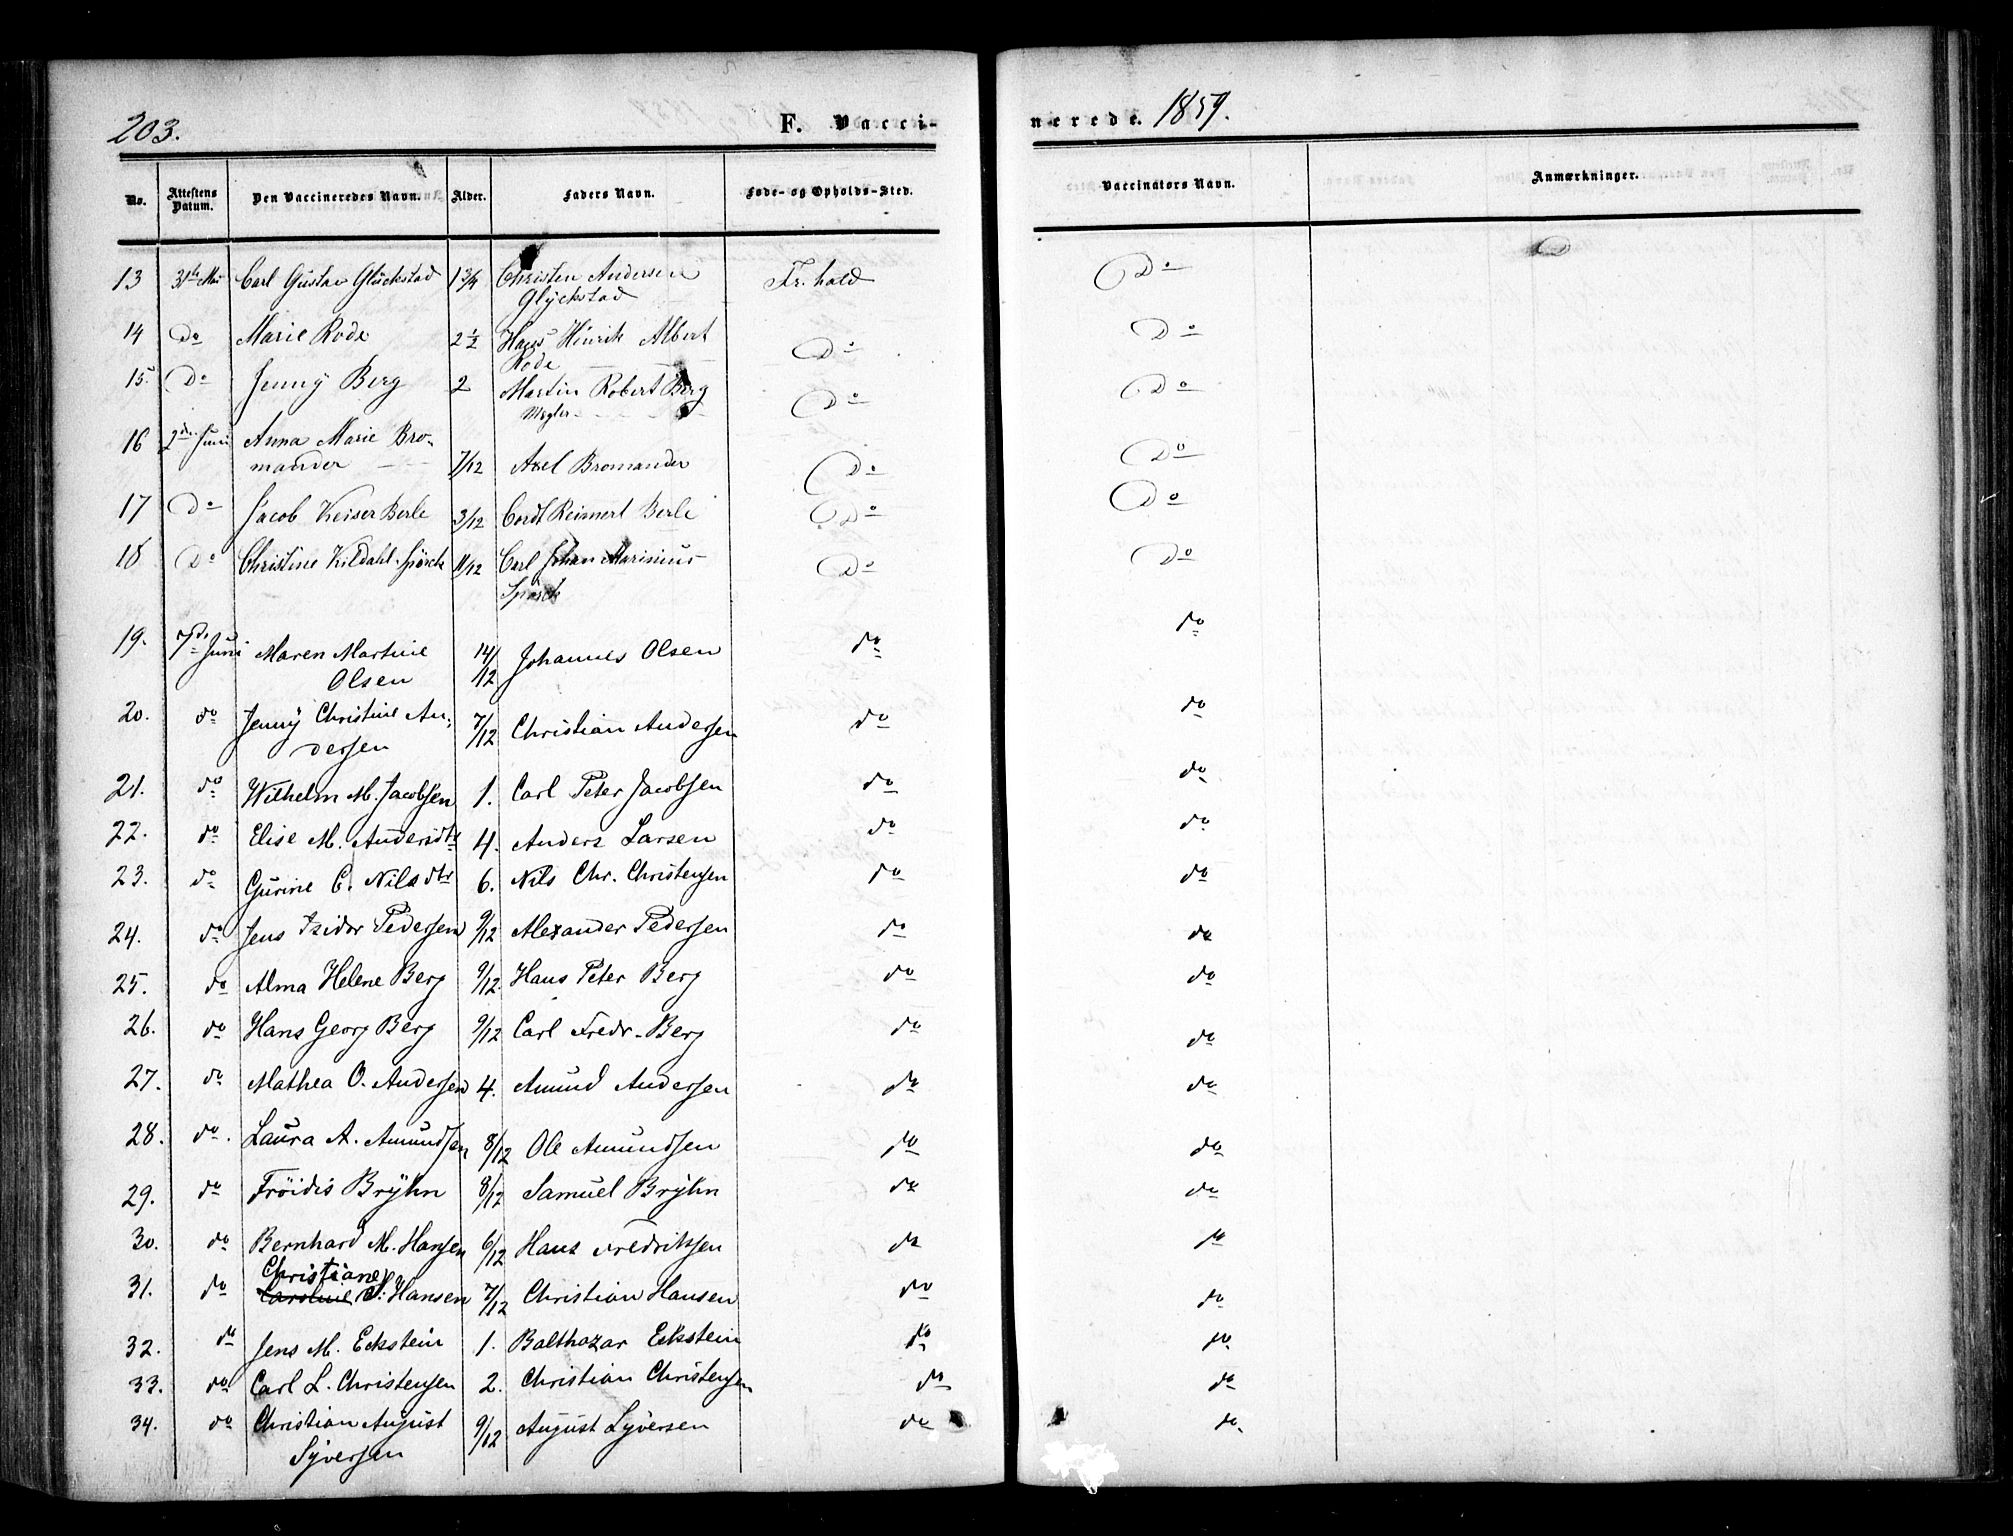 203.
F. Vacci-
nerede. 1859.
No. Attestens Datum. Den Vaccineredes Navn. Alder. Faders Navn. Føde- og Opholds-Sted. Vaccinators Navn. Anmærkninger.
13 31te Mai Carl Gustav Glückstad 1 3/4 Christen Andersen Fr.hald Do
Glyckstad
14 Do Marie Rode 2 1/2 Hans Hinrik Albert Do Do
Rode
15. Do Jenny Berg 2 Martin Robert Berg Do Do
Mægler
16 2den Juni Anna Marie Bro-
mander 7/12 Axel Bromander Do Do
17 Do Jacob Keiser Berle 3/12 Cordt Reimert Berle Do Do
18 Do Christine Kildahl Spørck 11/12 Carl Johan Marinius Do Do
Spørck
19. 7de Juni Maren Martine 14/12 Johannes Olsen do do
Olsen
20. do Jenny Christine An- 7/12 Christian Andersen do do
dersen
21. do Wilhelm M. Jacobsen 1. Carl Peter Jacobsen do do
22. do Elise M. Andersdtr 4. Anders Larsen do do
23. do Gurine C. Nilsdtr 6. Nils Chr. Christensen do do
24. do Jens Isidor Pedersen 9/12 Alexander Pedersen do do
25. do Alma Helene Berg 9/12 Hans Peter Berg do do
26. do Hans Georg Berg 9/12 Carl Fredr. Berg do do
27. do Mathea O. Andersen 4. Amund Andersen do do
28. do. Laura A. Amundsen 8/12 Ole Amundsen do do
29. do Fröidis Brÿhn 8/12 Samuel Brÿhn do do
30. do Bernhard M. Hansen 6/12 Hans Fredriksen do do
Christiane
31. do Caroline S. Hansen 7/12 Christian Hansen do do
32. do Jens M. Eckstein 1. Balthazar Eckstein do do
33. do Carl L. Christensen 2. Christian Christensen do do
34. do Christian August 9/12 August Syversen do do
Syversen